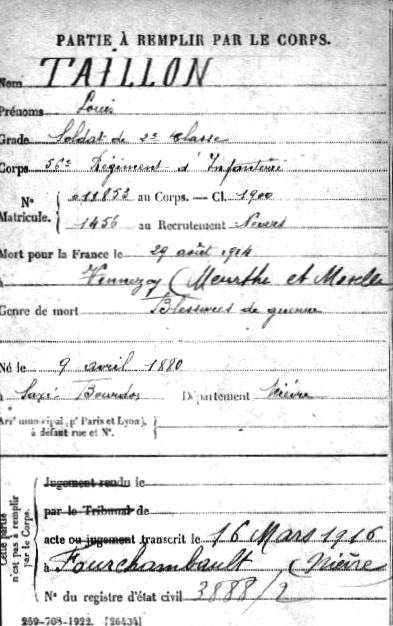 PARTIE À REMPLIR PAR LE CORPS.
Nom TAILLON
Prénoms Louis
Grade Soldat de 2e Classe
Corps 56e Régiment d'Infanterie
N° Matricule. 011853 au Corps. — Cl. 1900
1456 au Recrutement Nevers
Mort pour la France le 29 août 1914
à Vennezey (Meurthe et Moselle
Genre de mort Blessures de guerre
Né le 9 avril 1880
à Saxi Bourdon Département Nièvre
Arrt municipal (pr Paris et Lyon),
à défaut rue et N°.
Cette partie
n'est pas à remplir
par le Corps.
Jugement rendu le
par le Tribunal de
acte ou jugement transcrit le 16 Mars 1916
à Fourchambault (Nièvre)
N° du registre d'état civil 3888/2
259-708-1922. [26434]